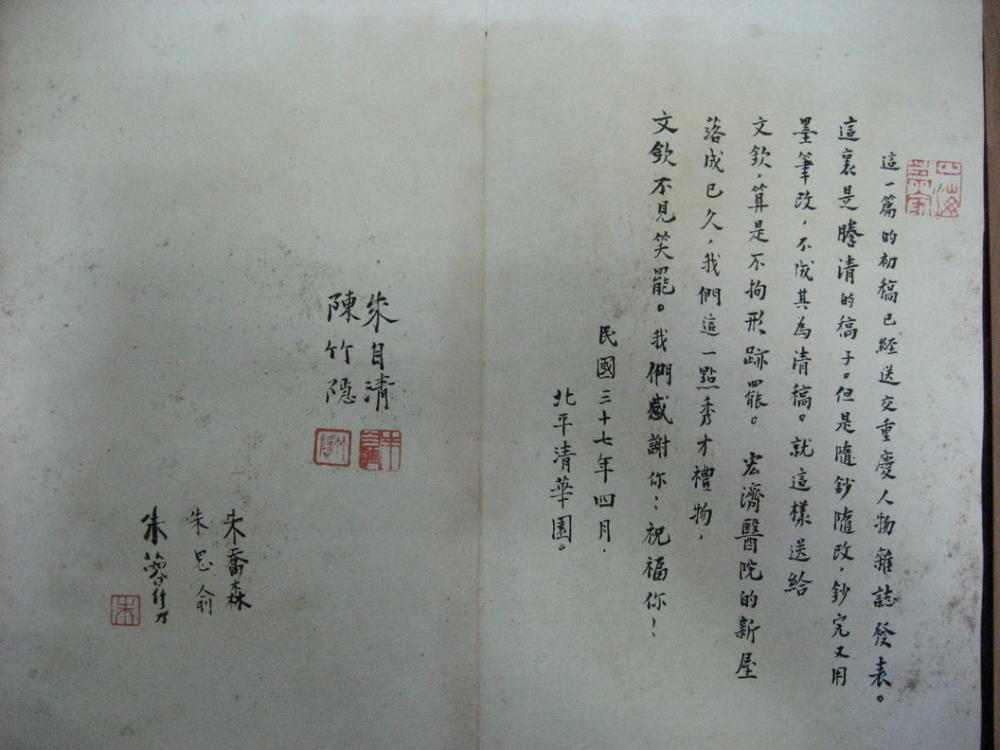 這一篇的初稿已經送交重慶人物雜誌發表。
這裏是謄清的稿子。但是隨鈔隨改,鈔完又用
墨筆改,不成其為清稿。就這樣送給
文欽,算是不拘形跡罷。宏濟醫院的新屋
落成已久,我們這一點秀才禮物,
文欽不見笑罷。我們感謝你!祝福你!
民國三十七年四月,
北平清華園。
朱自清
陳竹隱
朱自清
竹隱
朱喬森
朱思俞
朱蓉隽
朱